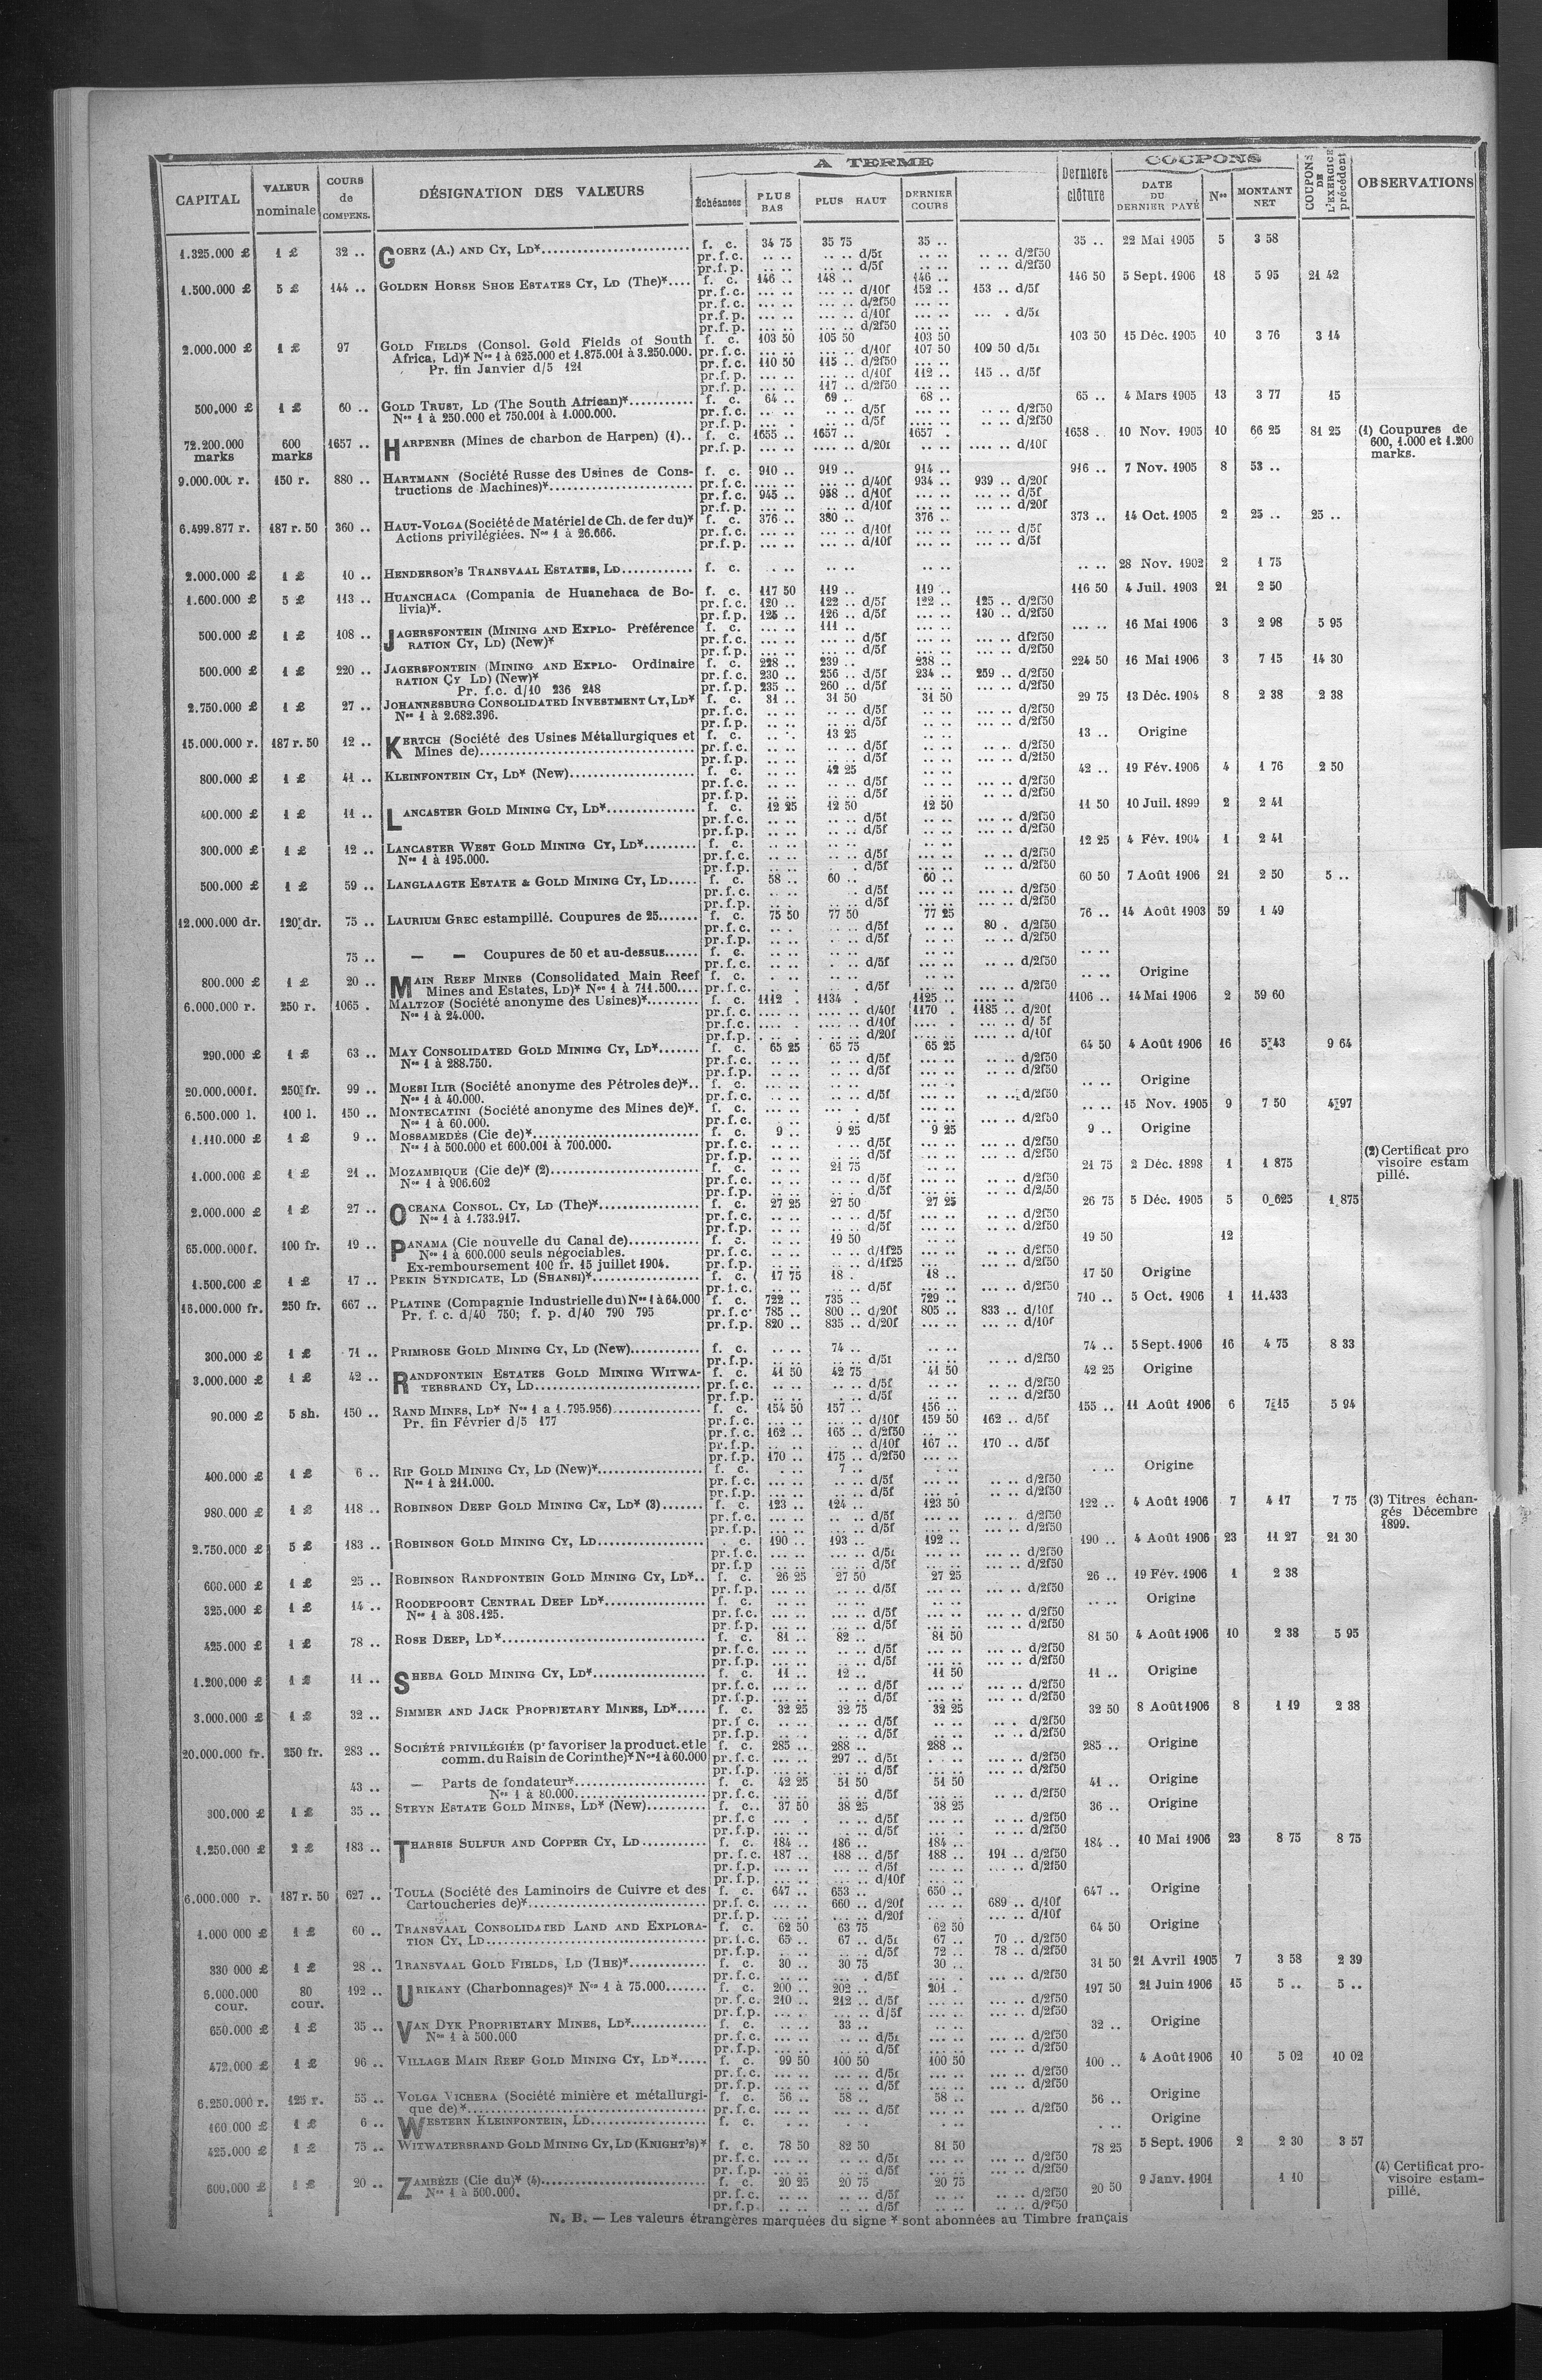 A TERME
COUPONS
CAPITAL
VALEUR nominale
COURS de COMPENS.
DÉSIGNATION DES VALEURS
Échéances
PLUS BAS
PLUS HAUT
DERNIER COURS
Dernière clôture
DATE DU DERNIER PAYÉ
Nos
MONTANT NET
COUPONS DE L'EXERCICE précédent
OBSERVATIONS
1.325.000 £ 1 £ 32 .. GOERZ (A.) AND CY, LD* f. c. 34 75 35 75 35 .. 35 .. 22 Mai 1905 5 3 58
pr.f.c. .. .. .. .. d/5f .. .. .. .. d/2f50
pr.f.p. .. .. .. .. d/5f .. .. .. .. d/2f50
1.500.000 £ 5 £ 144 .. GOLDEN HORSE SHOE ESTATES CY, LD (The)* f. c. 146 .. 148 .. 146 .. 146 50 5 Sept. 1906 18 5 95 21 42
pr.f.c. ... .. ... .. d/10f 152 .. 153 .. d/5f
pr.f.c. ... .. ... .. d/2f50 ... ..
pr.f.p. ... .. ... .. d/10f ... . d/5f
pr.f.p. ... .. ... .. d/2f50
2.000.000 £ 1 £ 97 GOLD FIELDS (Consol. Gold Fields of South f. c. 103 50 105 50 103 50 103 50 15 Déc. 1905 10 3 76 3 14
Africa, Ld)* Nos 1 à 625.000 et 1.875.001 à 3.250.000. pr.f.c. ... .. ... .. d/10f 107 50 109 50 d/5f
Pr. fin Janvier d/5 121 pr.f.c. 110 50 115 .. d/2f50 ... ..
pr.f.p. ... .. ... .. d/10f 112 .. 115 .. d/5f
pr.f.p. ... .. 117 .. d/2f50 ... ..
500.000 £ 1 £ 60 .. GOLD TRUST, LD (The South African)* f. c. 64 .. 69 .. 68 .. 65 .. 4 Mars 1905 13 3 77 15
Nos 1 à 250.000 et 750.001 à 1.000.000. pr.f.c. .. .. .. .. d/5f .. .. .. .. d/2f50
pr.f.p. .. .. d/5f .. .. d/2f50
72.200.000 marks 600 marks 1657 .. HARPENER (Mines de charbon de Harpen) (1).. f. c. 1655 .. 1657 .. 1657 . 1658 . 10 Nov. 1905 10 66 25 81 25 (1) Coupures de
pr.f.p. ... .. .... .. d/20f ... .. .... .. d/10f 600, 1.000 et 1.200
marks.
9.000.000 r. 150 r. 880 .. HARTMANN (Société Russe des Usines de Cons- f. c. 910 .. 919 .. 914 .. 916 .. 7 Nov. 1905 8 53 ..
tructions de Machines)* pr.f.c. ... .. ... .. d/40f 934 .. 939 .. d/20f
pr.f.c. 945 .. 958 .. d/10f ... .. ... .. d/5f
pr.f.p. ... .. ... .. d/10f ... .. d/20f
6.499.877 r. 187 r. 50 360 .. HAUT-VOLGA (Société de Matériel de Ch. de fer du)* f. c. 376 .. 380 .. 376 .. 373 .. 14 Oct. 1905 2 25 .. 25 ..
Actions privilégiées. Nos 1 à 26.666. pr.f.c. ... .. ... .. d/10f ... .. ... .. d/5f
pr.f.p. ... .. ... .. d/10f ... .. ... .. d/5f
2.000.000 £ 1 £ 10 .. HENDERSON'S TRANSVAAL ESTATES, LD f. c. . .. .. .. .. .. .. .. 28 Nov. 1902 2 1 75
1.600.000 £ 5 £ 113 .. HUANCHACA (Compania de Huanchaca de Bo- f. c. 117 50 119 .. 119 .. 116 50 4 Juil. 1903 21 2 50
livia)*. pr.f.c. 120 .. 122 .. d/5f 122 .. 125 .. d/2f50
pr.f.p. 125 .. 126 .. d/5f ... .. 130 .. d/2f50
500.000 £ 1 £ 108 .. JAGERSFONTEIN (MINING AND EXPLO- Préférence f. c. ... .. 111 .. ... .. ... .. 16 Mai 1906 3 2 98 5 95
RATION CY, LD) (New)* pr.f.c. ... .. ... .. d/5f ... .. ... .. df2f50
pr.f.p. ... .. ... .. d/5f ... .. ... .. d/2f50
500.000 £ 1 £ 220 .. JAGERSFONTEIN (MINING AND EXPLO- Ordinaire f. c. 228 .. 239 .. 238 .. 224 50 16 Mai 1906 3 7 15 14 30
RATION CY LD) (New)* pr.f.c. 230 .. 256 .. d/5f 234 .. 259 .. d/2f50
Pr. f.c. d/10 236 248 pr.f.p. 235 .. 260 .. d/5f ... .. ... .. d/2f50
2.750.000 £ 1 £ 27 .. JOHANNESBURG CONSOLIDATED INVESTMENT CY, LD* f. c. 31 .. 31 50 31 50 29 75 13 Déc. 1904 8 2 38 2 38
Nos 1 à 2.682.396. pr.f.c. .. .. .. .. d/5f .. .. .. .. d/2f50
pr.f.p. .. .. .. .. d/5f .. .. .. .. d/2f50
15.000.000 r. 187 r. 50 12 .. KERTCH (Société des Usines Métallurgiques et f. c. .. . 13 25 .. .. 13 .. Origine
Mines de) pr.f.c. .. .. .. .. d/5f .. .. .. .. d/2f50
pr.f.p. .. .. .. .. d/5f .. .. .. .. d/2f50
800.000 £ 1 £ 41 .. KLEINFONTEIN CY, LD* (New) f. c. .. .. 42 25 .. .. 42 .. 19 Fév. 1906 4 1 76 2 50
pr.f.c. .. .. .. .. d/5f .. .. .. .. d/2f50
pr.f.p. .. .. .. .. d/5f .. .. .. .. d/2f50
400.000 £ 1 £ 11 .. LANCASTER GOLD MINING CY, LD* f. c. 12 25 12 50 12 50 11 50 10 Juil. 1899 2 2 41
pr.f.c. .. .. .. .. d/5f .. .. ... .. d/2f50
pr.f.p. .. .. .. .. d/5f .. .. ... .. d/2f50
300.000 £ 1 £ 12 .. LANCASTER WEST GOLD MINING CY, LD* f. c. .. .. .. .. .. .. 12 25 4 Fév. 1904 1 2 41
Nos 1 à 195.000. pr.f.c. .. .. .. .. d/5f ... .. .. .. d/2f50
pr.f.p. .. .. . .. d/5f ... .. .. .. d/2f50
500.000 £ 1 £ 59 .. LANGLAAGTE ESTATE & GOLD MINING CY, LD f. c. 58 .. 60 .. 60 .. 60 50 7 Août 1906 21 2 50 5 ..
pr.f.c. ... .. . .. d/5f ... .. ... .. d/2f50
pr.f.p. ... .. .. .. d/5f ... .. ... .. d/2f50
12.000.000 dr. 120 dr. 75 .. LAURIUM GREC estampillé. Coupures de 25 f. c. 75 50 77 50 77 25 76 .. 14 Août 1903 59 1 49
pr.f.c. .. . .. .. d/5f .. .. 80 . d/2f50
pr.f.p. .. .. .. .. d/5f .. .. .. .. d/2f50
75 .. — — Coupures de 50 et au-dessus f. c. .. .. .. .. .. .. .. ..
pr.f.c. .. .. .. .. d/5f .. .. .. .. d/2f50
800.000 £ 1 £ 20 .. MAIN REEF MINES (Consolidated Main Reef f. c. . .. .. .. .. .. .. .. Origine
Mines and Estates, LD)* Nos 1 à 711.500 pr.f.c. .. . . .. d/5f ... .. ... .. d/2f50
6.000.000 r. 250 r. 1065 . MALTZOF (Société anonyme des Usines)* f. c. 1112 . 1134 . 1125 .. .... .. 1106 .. 14 Mai 1906 2 59 60
Nos 1 à 24.000. pr.f.c. .... . .... .. d/40f 1170 . 1185 .. d/20f
pr.f.c. .... . .... .. d/10f .... . ... .. d/ 5f
pr.f.p. .... . .... .. d/20f ... .. .... .. d/10f
290.000 £ 1 £ 63 .. MAY CONSOLIDATED GOLD MINING CY, LD* f. c. 65 25 65 75 65 25 64 50 4 Août 1906 16 5 43 9 64
Nos 1 à 288.750. pr.f.c. .. .. .. .. d/5f .. .. .. .. d/2f50
pr.f.p. .. .. .. .. d/5f .. .. .. .. d/2f50
20.000.000 f. 250 fr. 99 .. MOESI ILIR (Société anonyme des Pétroles de)*.. f. c. ... .. .. .. ... .. .. .. Origine
Nos 1 à 40.000. pr.f.c. .. .. .. .. d/5f ... . .. .. d/2f50
6.500.000 l. 100 l. 150 .. MONTECATINI (Société anonyme des Mines de)*. f. c. ... .. ... . .. .. .. .. 15 Nov. 1905 9 7 50 4 97
Nos 1 à 60.000. pr.f.c. .. .. . .. d/5f ... .. ... .. d/2f50
1.110.000 £ 1 £ 9 .. MOSSAMEDÈS (Cie de)* f. c. 9 .. 9 25 9 25 9 .. Origine
Nos 1 à 500.000 et 600.001 à 700.000. pr.f.c. .. .. . .. d/5f .. .. ... .. d/2f50
pr.f.p. .. .. . .. d/5f .. .. ... .. d/2f50 (2) Certificat pro
1.000.000 £ 1 £ 21 .. MOZAMBIQUE (Cie de)* (2) f. c. .. . 21 75 .. .. 21 75 2 Déc. 1898 1 1 875 visoire estam
Nos 1 à 906.602 pr.f.c. .. .. .. .. d/5f .. .. .. .. d/2f50 pillé.
pr.f.p. .. .. .. .. d/5f .. .. .. .. d/2/50
2.000.000 £ 1 £ 27 .. OCEANA CONSOL. CY, LD (The)* f. c. 27 25 27 50 27 25 26 75 5 Déc. 1905 5 0 625 1 875
Nos 1 à 1.733.917. pr.f.c. .. .. .. .. d/5f .. .. .. .. d/2f50
pr.f.p. .. .. .. .. d/5f .. .. .. .. d/2f50
65.000.000 f. 100 fr. 19 .. PANAMA (Cie nouvelle du Canal de) f. c. .. . 19 50 .. .. 19 50 12
Nos 1 à 600.000 seuls négociables. pr.f.c. .. .. .. .. d/1f25 ... .. .. .. d/2f50
Ex-remboursement 100 fr. 15 juillet 1904. pr.f.p. .. .. .. .. d/1f25 ... .. .. .. d/2f50
1.500.000 £ 1 £ 17 .. PEKIN SYNDICATE, LD (SHANSI)* f. c. 17 75 18 . 18 .. 17 50 Origine
pr.f.c. .. .. .. .. d/5f ... .. .. .. d/2f50
16.000.000 fr. 250 fr. 667 .. PLATINE (Compagnie Industrielle du) Nos 1 à 64.000 f. c. 722 .. 735 .. 729 .. 710 .. 5 Oct. 1906 1 11.433
Pr. f. c. d/40 750; f. p. d/40 790 795 pr.f.c. 785 .. 800 .. d/20f 805 .. 833 .. d/10f
pr.f.p. 820 .. 835 .. d/20f ... .. ... .. d/10f
300.000 £ 1 £ 71 .. PRIMROSE GOLD MINING CY, LD (New) f. c. .. .. 74 .. .. .. 74 .. 5 Sept. 1906 16 4 75 8 33
pr.f.p. .. .. .. .. d/5f ... .. .. .. d/2f50
3.000.000 £ 1 £ 42 .. RANDFONTEIN ESTATES GOLD MINING WITWA- f. c. 41 50 42 75 41 50 42 25 Origine
TERSRAND CY, LD pr.f.c. .. .. .. .. d/5f .. .. .. .. d/2f50
pr.f.p. .. .. . .. d/5f .. .. .. .. d/2f50
90.000 £ 5 sh. 150 .. RAND MINES, LD* Nos 1 a 1.795.956) f. c. 154 50 157 .. 156 .. 155 .. 11 Août 1906 6 7 15 5 94
Pr. fin Février d/5 177 pr.f.c. ... .. ... .. d/10f 159 50 162 .. d/5f
pr.f.c. 162 .. 165 .. d/2f50 .. ..
pr.f.p. .. .. .. .. d/10f 167 .. 170 .. d/5f
pr.f.p. 170 .. 175 .. d/2f50 ... ..
400.000 £ 1 £ 6 .. RIP GOLD MINING CY, LD (New)* f. c. . .. 7 .. . .. . .. Origine
Nos 1 à 211.000. pr.f.c. ... .. .. .. d/5f .. .. .. .. d/2f50
pr.f.p. ... .. .. .. d/5f .. .. .. .. d/2f50
980.000 £ 1 £ 118 .. ROBINSON DEEP GOLD MINING CY, LD* (3) f. c. 123 .. 124 .. 123 50 122 .. 4 Août 1906 7 4 17 7 75 (3) Titres échan-
pr.f.c. ... .. .. .. d/5f ... .. ... .. d/2f50 gés Décembre
pr.f.p. ... .. ... .. d/5f ... .. ... .. d/2f50 1899.
2.750.000 £ 5 £ 183 .. ROBINSON GOLD MINING CY, LD . c. 190 .. 193 .. 192 .. 190 .. 4 Août 1906 23 11 27 21 30
pr.f.c. ... .. ... .. d/5f ... .. ... .. d/2f50
pr.f.p ... .. ... .. d/5f ... .. ... .. d/2f50
600.000 £ 1 £ 25 .. ROBINSON RANDFONTEIN GOLD MINING CY, LD*.. f. c. 26 25 27 50 27 25 26 .. 19 Fév. 1906 1 2 38
pr.f.p. .. .. .. .. d/5f ... .. ... .. d/2f50
325.000 £ 1 £ 14 .. ROODEPOORT CENTRAL DEEP LD* f. c. .. .. .. .. .. .. .. .. Origine
Nos 1 à 308.125. pr.f.c. ... .. .. .. d/5f ... .. ... .. d/2f50
pr.f.p. ... .. .. .. d/5f ... .. ... .. d/2f50
425.000 £ 1 £ 78 .. ROSE DEEP, LD* f. c. 81 .. 82 .. 81 50 81 50 4 Août 1906 10 2 38 5 95
pr.f.c. ... .. .. .. d/5f ... .. ... .. d/2f50
pr.f.p. ... .. .. .. d/5f ... .. ... .. d/2f50
1.200.000 £ 1 £ 11 .. SHEBA GOLD MINING CY, LD* f. c. 11 .. 12 .. 11 50 11 .. Origine
pr.f.c. ... .. .. .. d/5f ... .. ... .. d/2f50
pr.f.p. ... .. .. .. d/5f ... .. ... .. d/2f50
3.000.000 £ 1 £ 32 .. SIMMER AND JACK PROPRIETARY MINES, LD* f. c. 32 25 32 75 32 25 32 50 8 Août 1906 8 1 19 2 38
pr.f c. .. .. .. .. d/5f .. .. .. . d/2f50
pr.f.p. .. .. .. .. d/5f .. .. .. .. d/2f50
20.000.000 fr. 250 fr. 283 .. SOCIÉTÉ PRIVILÉGIÉE (pr favoriser la product. et le f. c. 285 .. 288 .. 288 .. 285 .. Origine
comm. du Raisin de Corinthe)* Nos 1 à 60.000 pr.f.c. ... .. 297 .. d/5f . .. ... .. d/2f50
pr.f.p. ... .. ... .. d/5f ... .. ... .. d/2f50
43 .. — Parts de fondateur* f. c. 42 25 51 50 51 50 41 .. Origine
Nos 1 à 80.000 pr.f.c. ... .. ... .. d/5f ... .. ... .. d/2f50
300.000 £ 1 £ 35 .. STEYN ESTATE GOLD MINES, LD* (New) f. c. 37 50 38 25 38 25 36 .. Origine
pr.f.c ... . .. .. d/5f .. .. .. .. d/2f50
pr.f.p. ... .. .. .. d/5f .. .. .. .. d/2f50
1.250.000 £ 2 £ 183 .. THARSIS SULFUR AND COPPER CY, LD f. c. 184 .. 186 .. 184 .. 184 .. 10 Mai 1906 23 8 75 8 75
pr.f.c. 187 .. 188 .. d/5f 188 .. 191 .. d/2f50
pr.f.p. ... .. ... .. d/5f ... .. ... .. d/2f50
pr.f.p. ... .. ... .. d/10f
6.000.000 r. 187 r. 50 627 .. TOULA (Société des Laminoirs de Cuivre et des f. c. 647 .. 653 .. 650 .. 647 .. Origine
Cartoucheries de)* pr.f.c. ... .. 660 .. d/20f ... .. 689 .. d/10f
pr.f.p. ... .. ... .. d/20f ... .. ... .. d/10f
1.000 000 £ 1 £ 60 .. TRANSVAAL CONSOLIDATED LAND AND EXPLORA- f. c. 62 50 63 75 62 50 64 50 Origine
TION CY, LD pr.f.c. 65 .. 67 .. d/5f 67 .. 70 .. d/2f50
pr.f.p. . .. .. .. d/5f 72 .. 78 .. d/2f50
330 000 £ 1 £ 28 .. TRANSVAAL GOLD FIELDS, LD (THE)* f. c. 30 .. 30 75 30 .. 31 50 21 Avril 1905 7 3 58 2 39
pr.f.c. .. .. . d/5f ... . ... .. d/2f50
6.000.000 cour. 80 cour. 192 .. URIKANY (Charbonnages)* Nos 1 à 75.000 f. c. 200 .. 202 .. 201 . 197 50 21 Juin 1906 15 5 .. 5 ..
pr.f.c. 210 .. 212 .. d/5f ... .. ... .. d/2f50
pr.f.p. ... .. ... .. d/5f ... .. ... .. d/2f50
650.000 £ 1 £ 35 .. VAN DYK PROPRIETARY MINES, LD* f. c. .. .. 33 .. .. .. 32 .. Origine
Nos 1 à 500.000 pr.f.c. ... .. .. .. d/5f ... .. ... .. d/2f50
pr.f.p. ... .. .. .. d/5f ... .. ... .. d/2f50
472.000 £ 1 £ 96 .. VILLAGE MAIN REEF GOLD MINING CY, LD* f. c. 99 50 100 50 100 50 100 .. 4 Août 1906 10 5 02 10 02
pr.f.c. ... .. ... .. d/5f ... .. ... .. d/2f50
pr.f.p. ... .. ... .. d/5f ... .. ... .. d/2f50
6.250.000 r. 125 r. 55 .. VOLGA VICHERA (Société minière et métallurgi- f. c. 56 .. 58 .. 58 .. 56 .. Origine
que de)* pr.f.c. ... .. ... .. d/5f ... .. ... .. d/2f50
160 000 £ 1 £ 6 .. WESTERN KLEINFONTEIN, LD f. c. . .. . .. . .. . .. Origine
425.000 £ 1 £ 75 .. WITWATERSRAND GOLD MINING CY, LD (KNIGHT'S)* f. c. 78 50 82 50 81 50 78 25 5 Sept. 1906 2 2 30 3 57
pr.f.c. ... .. .. .. d/5f ... .. ... .. d/2f50
pr.f.p. ... .. .. .. d/5f ... .. ... .. d/2f50 (4) Certificat pro-
600.000 £ 1 £ 20 .. ZAMBÈZE (Cie du)* (4) f. c. 20 25 20 75 20 75 20 50 9 Janv. 1901 1 10 visoire estam-
Nos 1 à 500.000. pr.f.c. .. .. .. .. d/5f .. .. .. .. d/2f50 pillé.
pr.f.p. .. .. .. .. d/5f .. .. .. .. d/2f50
N. B. — Les valeurs étrangères marquées du signe * sont abonnées au Timbre français